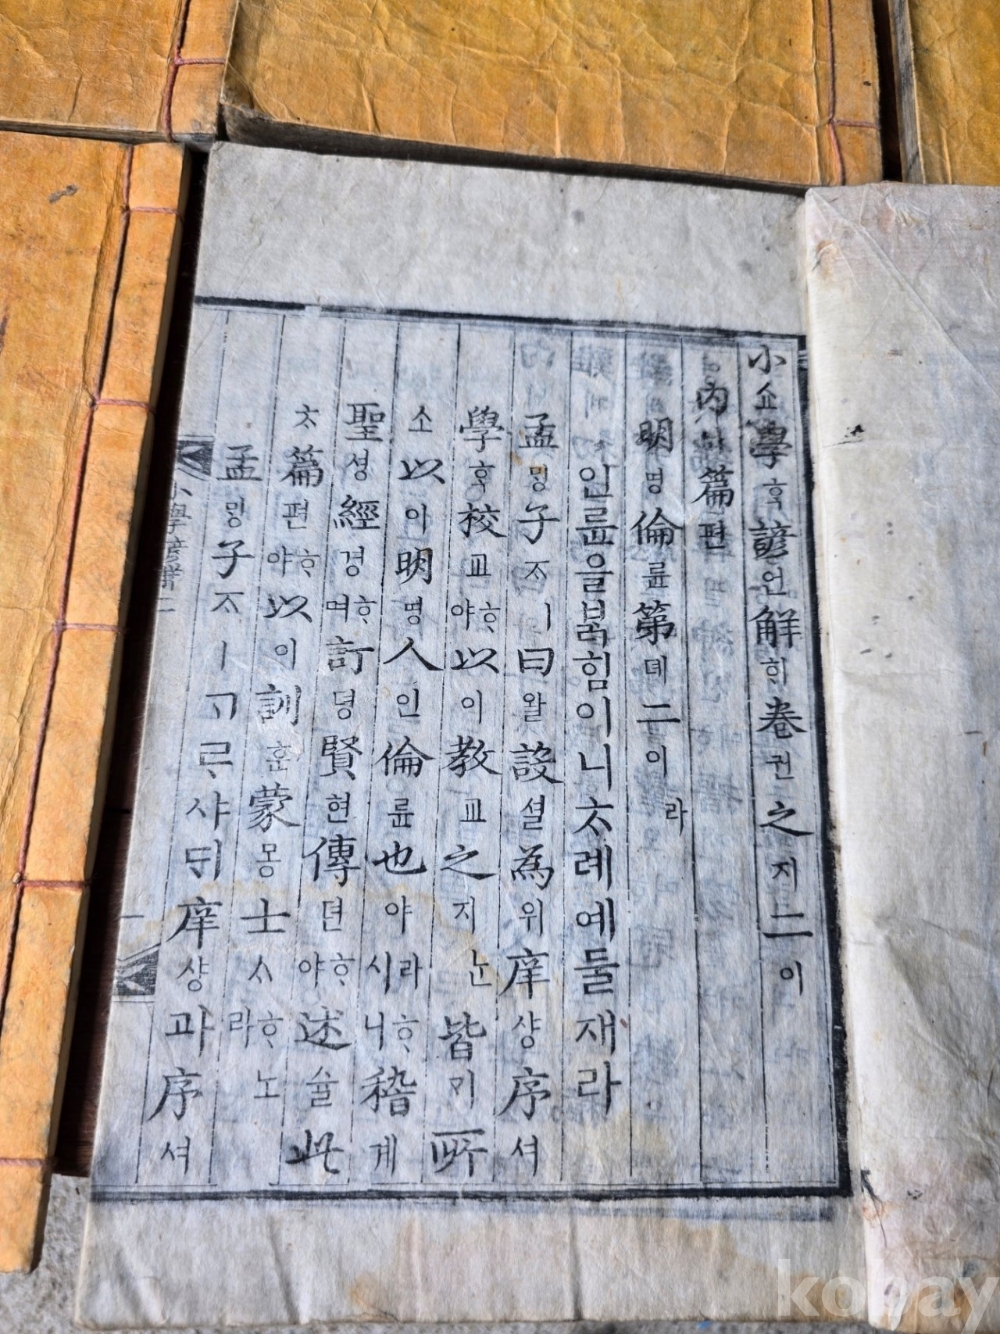 小쇼學ᄒᆞᆨ諺언解ᄒᆡ卷권之지二이
內ᄂᆡ篇편
明명倫륜第뎨二이라
인륜을ᄇᆞᆰ힘이니ᄎᆞ례예둘재라
孟ᄆᆡᆼ子ᄌᆞㅣ曰왈設셜為위庠샹序셔
學ᄒᆞᆨ校교ᄒᆞ야以이教교之지ᄂᆞᆫ皆ᄀᆡ所
소以이明명人인倫륜也야라ᄒᆞ시니稽계
聖셩經경ᄒᆞ며訂뎡賢현傳뎐ᄒᆞ야述슐此
ᄎᆞ篇편ᄒᆞ야以이訓훈蒙몽士ᄉᆞᄒᆞ노라
孟ᄆᆡᆼ子ᄌᆞㅣᄀᆞᄅᆞ샤ᄃᆡ庠샹과序셔
小學諺解二
一
kobay